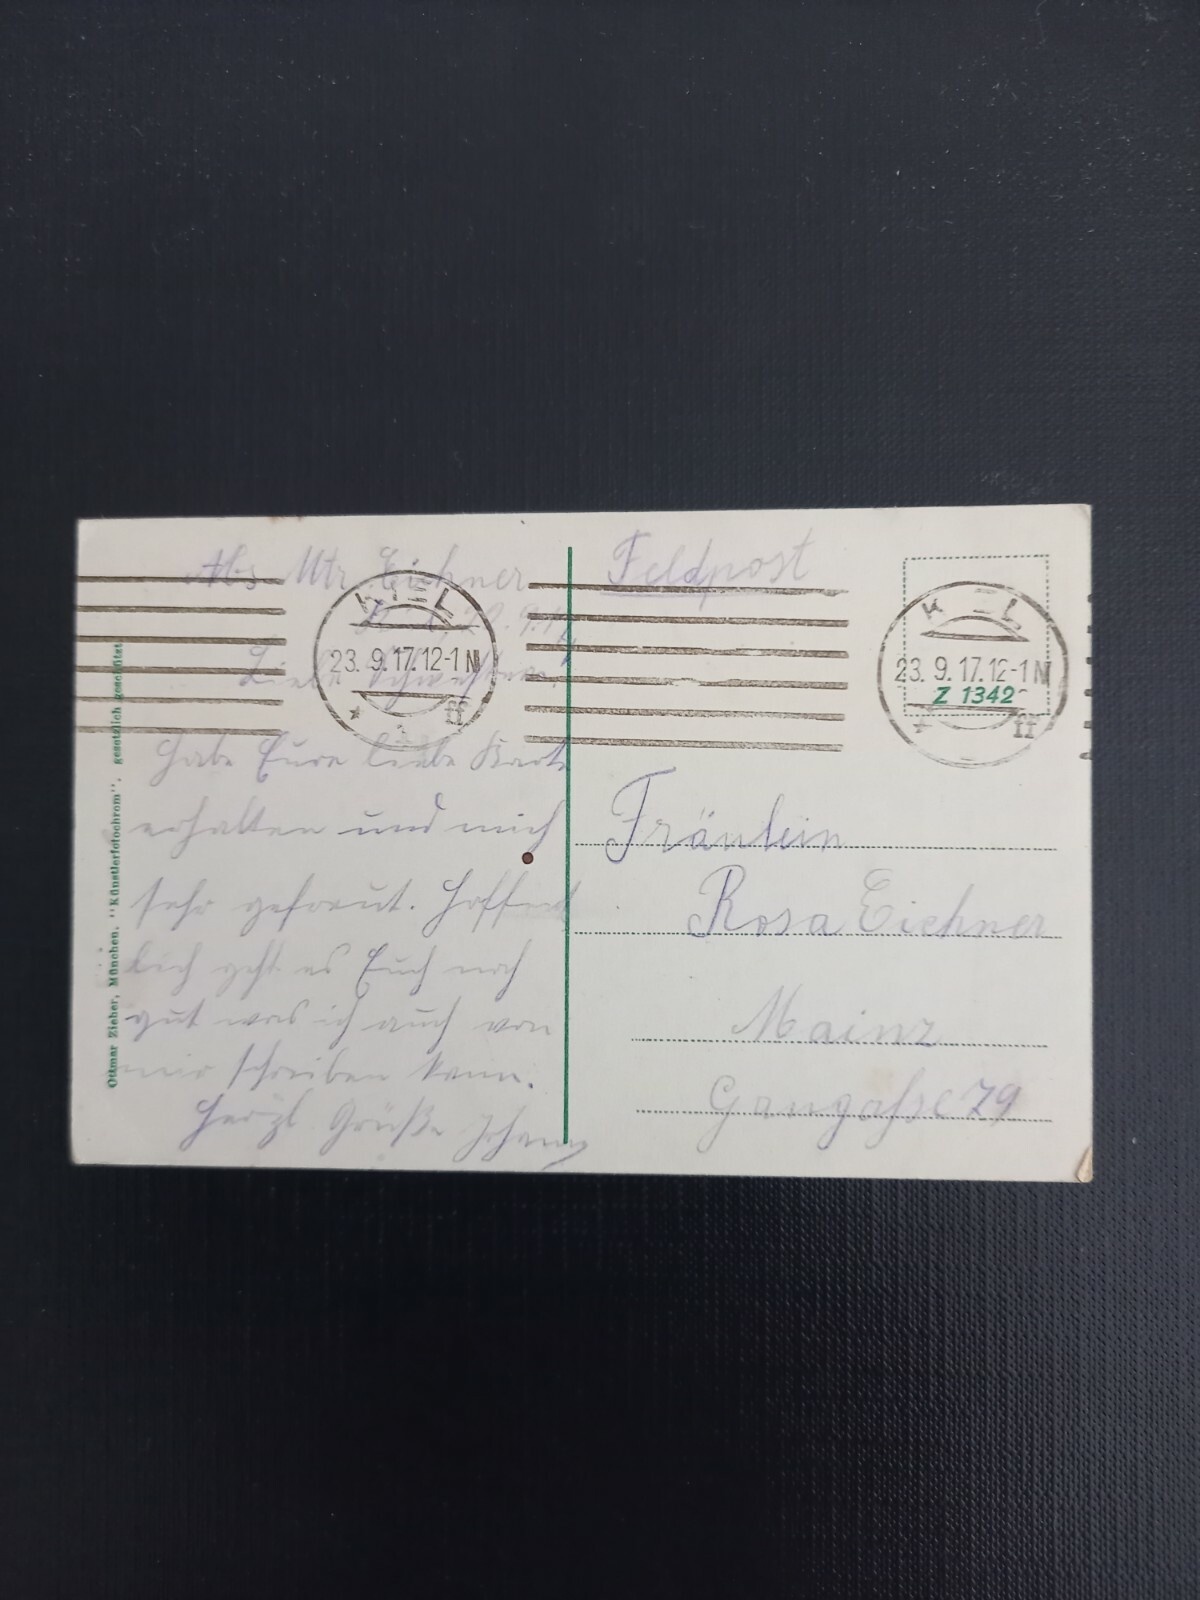 Abs Mtr Eichner
Kiel, 22.9.17
Liebe Schwestern!
Habe Eure liebe Karte
erhalten und mich
sehr gefreut. Hoffent
lich geht es Euch noch
gut was ich auch von
mir schreiben kann.
Herzl Grüße
Feldpost
KIEL
23. 9. 17. 12-1 N
ff
KIEL
23. 9. 17. 12-1 N
Z 1342
ff
Fräulein
Rosa Eichner
Mainz
Gaugasse 79
Ottmar Zieher, München. "Künstlerfotochrom", gesetzlich geschützt